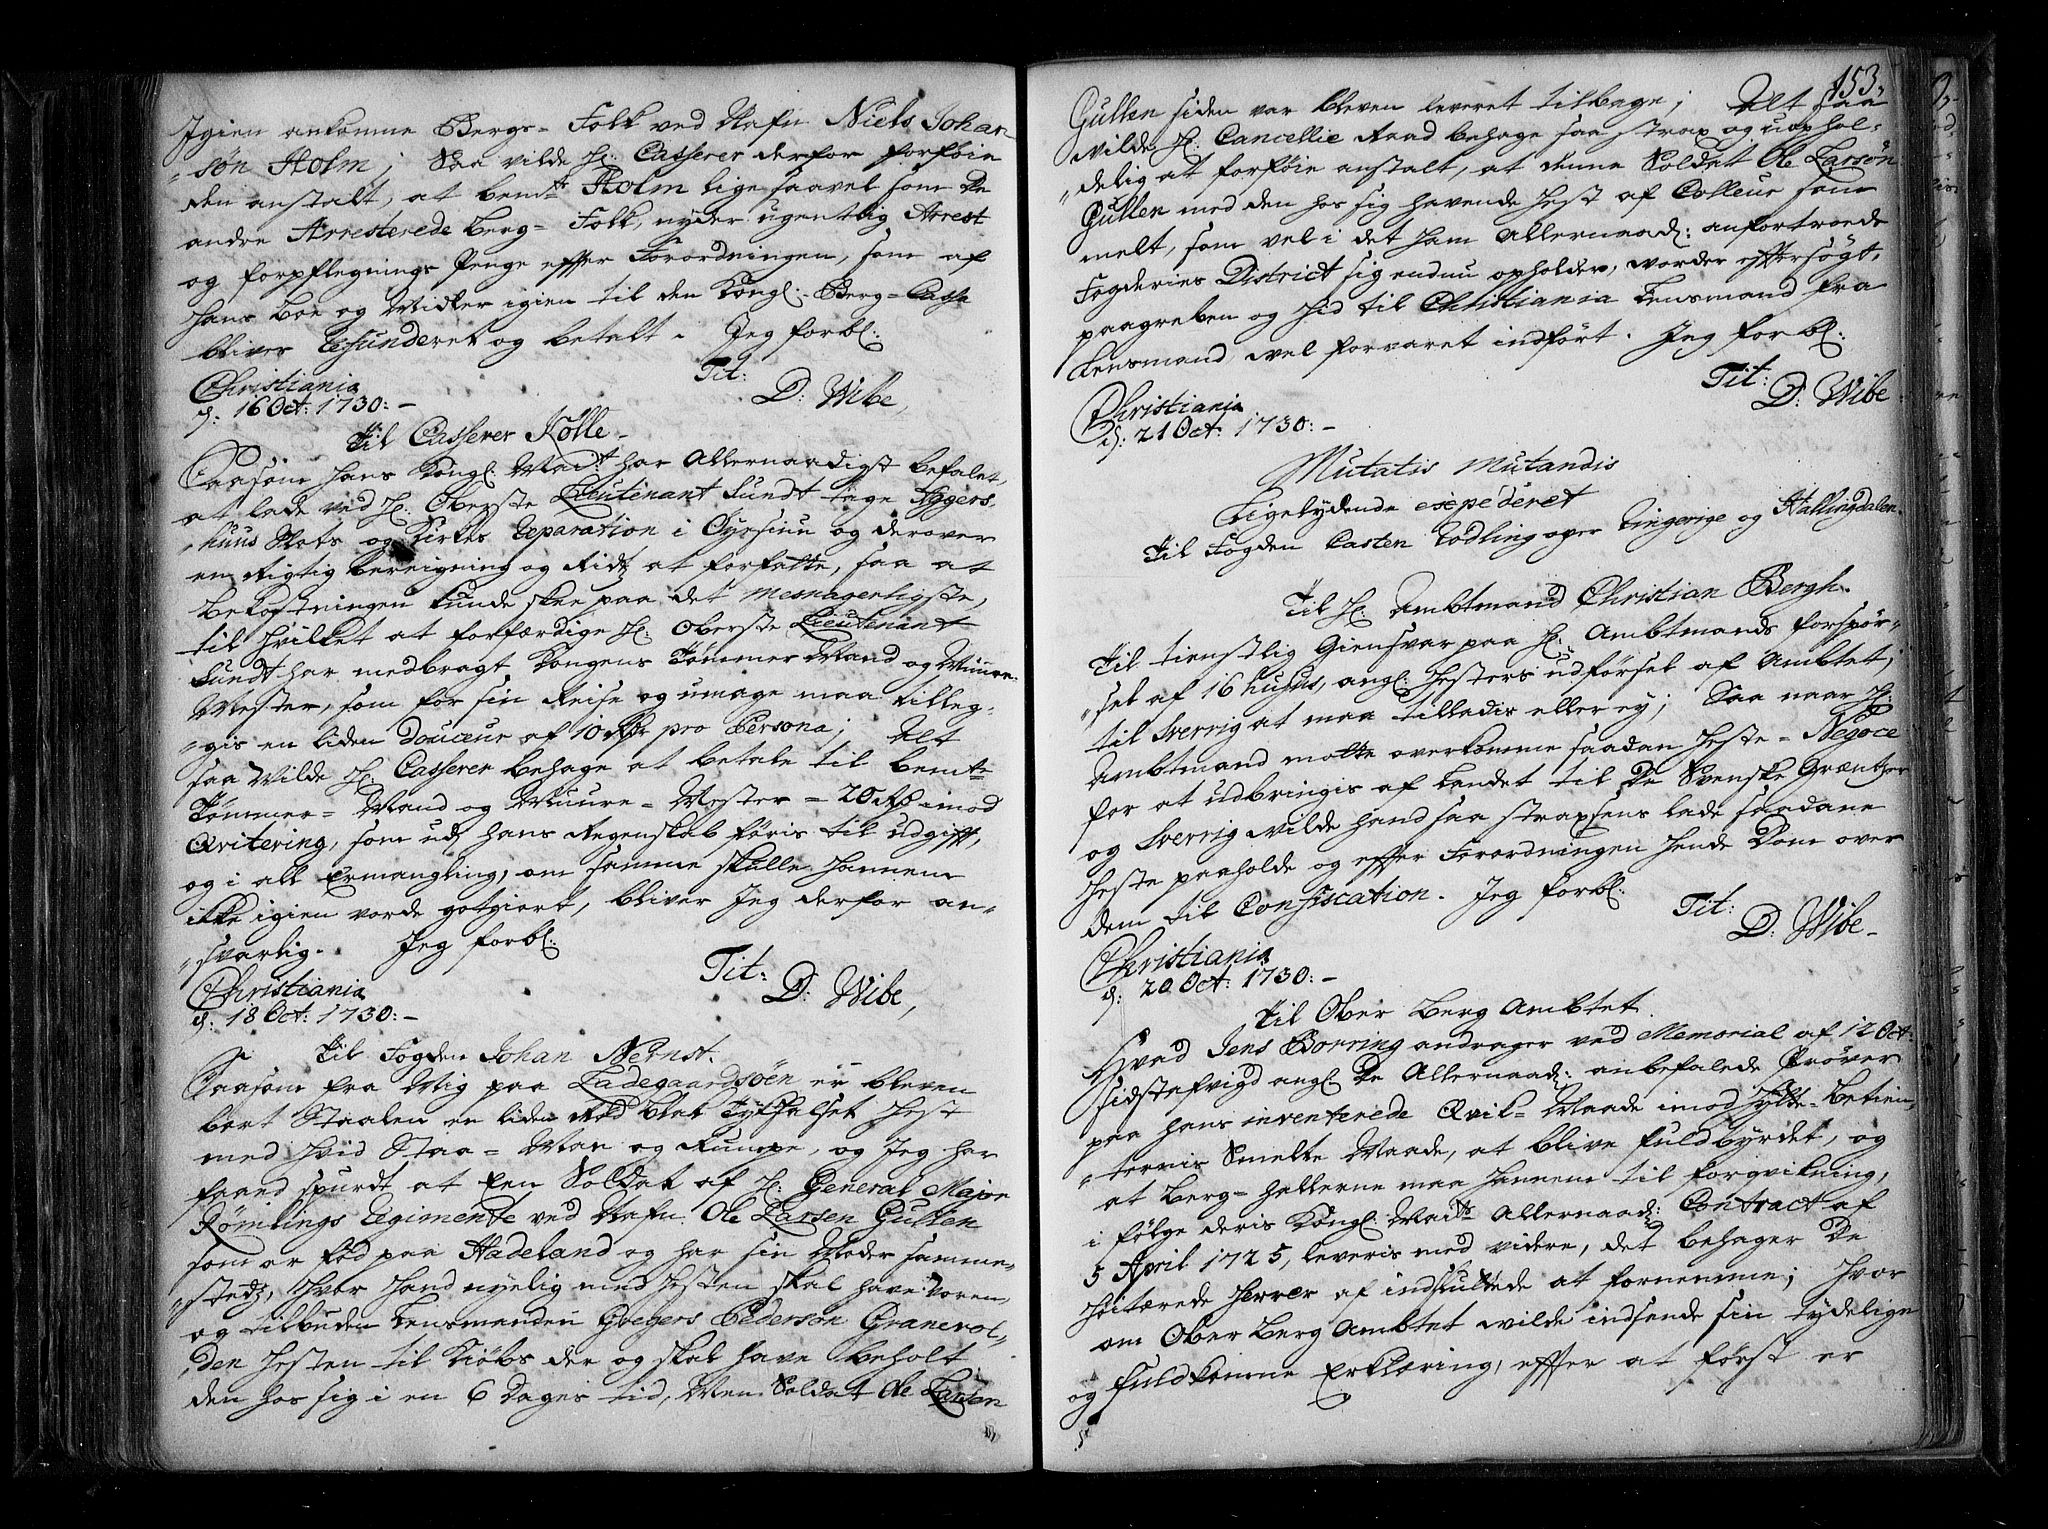 Igien ankomne Bergs- Folk ved Nafn Niels Johan
„søn Holm; Saa vilde Hr: Casserer derfor forføie
den anstalt, at bemte Holm lige saavel som de
andre Arresterede Berg- Folk, nyder ugentlig Arrest
og forpflegnings Penge effter Forordningen, som af
hans boe og Midler igien til den Kongl:- Berg-Cassa
bliver refunderet og betalt. Jeg forbl:
Christiania Tit:
d: 16 Oct: 1730:- D: Wibe,
Til Casserer Kølle-
Saasom Hans Kongl: Maits har Allernaadigst befalet,
at lade ved Hr: Oberste Lieutinant Sundt tage Aggers-
„huus Slots og Kirkes Reparation i Øyesiun og derover
en Rigtig bereigning og Ridz at forfatte, saa at
bekostningen kunde skee paa det mesnagerligste,
til hvilket at forfærdige Hr: Oberste Lieutenant
Sundt har medbragt Kongens Tømmer Mand og Muur-
Mester, som for sin Reise og umage maa tilleg-
„gis en liden douceur af 10 Rdr pro Persona; Alt
saa Wilde Hr: Casserer behage at betale til bemte
Tømmer- Mand og Muure- Mester - 20 Rdr imod
Qvitering, som udj hans Regenskab føris til udgifft,
og i all Ermangling, om samme skulle hannem
ikke igien vorde gotgiort, bliver Jeg derfor an-
„svarlig. Jeg forbl:
Christiania Tit:
d: 18 Oct: 1730:- D: Wibe,
Til Fogden Johan Nernst.
Saasom fra Mig paa Ladegaardsøen er bleven
bort Staalen en liden Rød blet tykhalset Hest
med hvid Staa- Man og Rumpe, og Jeg har
faaed spurdt at een Soldat af Hr: General Major
Rømlings Regimente ved Nafn Ole Larsen Gullen
som er fød paa Hadeland og har sin Moder samme-
„stedz, hvor hand nyelig med Hesten skal have voren,
og tilbuden Lensmanden Gregers Pedersøn Granevol-
„den Hesten til Kiøbs der og skal have beholt
den hos sig i en 6 Dages tid, Men Soldat Ole Larsen
153.
Gullen siden var bleven leveret tilbage; Alt saa
wilde Hr: Cancellie Raad behage saa strax og uophol-
„delig at forføie anstalt, at denne Soldat Ole Larsøn
Gullen med den hos sig havende Hest af Colleur som
melt, som vel i det ham Allernaad: anfortroede
Fogderies District sig endnu opholder, worder efftersøgt,
paagreben og hid til Christiania Lensmand fra
Lensmand, vel forvaret indført. Jeg forbl:
Tit:
Christiania D: Wibe
d: 21 Oct: 1730:-
Mutatis Mutandis
Ligelydende expederet
Til Fogden Casten Rodling over Ringerige og Hallingdalen.
Til Hr: Ambtmand Christian Bergh.
Til tienstlig Giensvar paa Hr: Ambtmands forspør-
„sel af 16 hujus, angl: Hesters udførsel af Ambtet,
til Sverrig at maa tilladis eller ey; Saa naar Hr:
Ambtmand motte overkomme saadan Heste- Negoce
for at udbringis af Landet til de Svenske Græntzer
og Sverrig wilde hand saa strapsens lade saadane
Heste paaholde og effter Forordningen hende Dom over
dem til Confiscation. Jeg forbl:
Tit:
Christiania D: Wibe-
d: 20 Oct: 1730:-
Til Ober Berg Ambtet.
Hvad Jens Borring andrager ved Memorial af 12 Oct:
sidstafvigd angl: De Allernaad: anbefalede Prøver
paa hans inventerede Qvik- Maade imod Hytte- betien-
„ternis Smelte Maade, at blive fuldbyrdet, og
at Berg- hallerne maa hannem til forqvikning,
i følge deris Kongl: Maits Allernaad: Contract af
5 April 1725, leveris med videre, det behager De
Høitærede Herrer af indsluttede at fornemme; Hvor
om Ober Berg Ambtet wilde indsende sin tydelige
og fuldkomne Erklæring, effter at først er